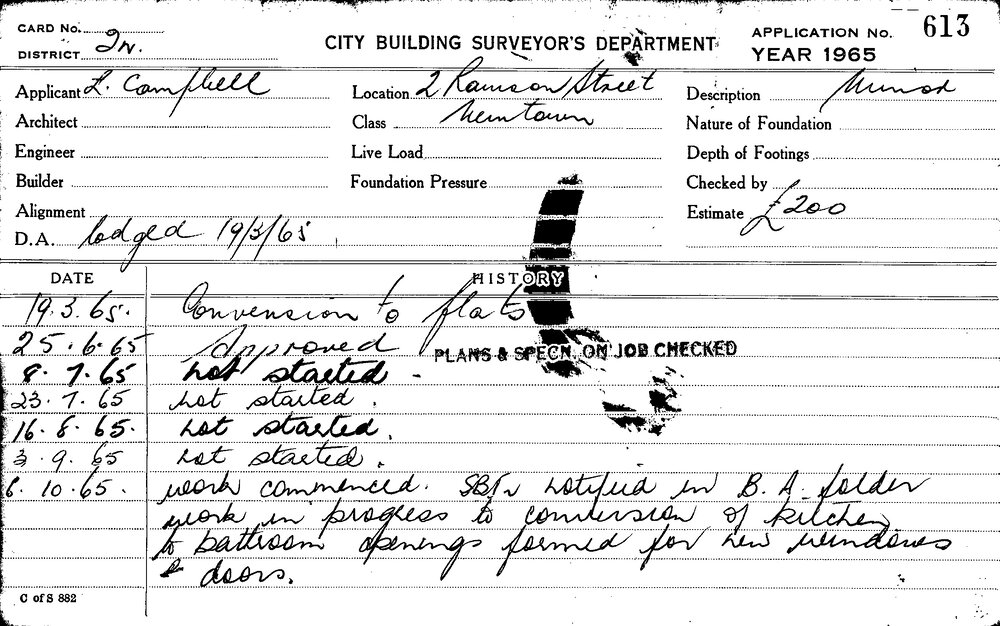 CARD No.
DISTRICT 2N.
CITY BUILDING SURVEYOR'S DEPARTMENT
APPLICATION No. 613
YEAR 1965
Applicant L. Campbell
Location 2 Rawson Street
Description Minor
Architect
Class Newtown
Nature of Foundation
Engineer
Live Load
Depth of Footings
Builder
Foundation Pressure
Checked by
Alignment
Estimate £200
D.A. lodged 19/3/65
DATE HISTORY
19.3.65. Conversion to flats
25.6.65 Approved
PLANS & SPECN. ON JOB CHECKED
8.7.65 not started -
23.7.65 not started.
16.8.65. not started.
3.9.65 not started.
6.10.65. work commenced. notified in B.A. folder
work in progress to conversion of kitchen
to bathroom openings formed for new windows
& doors.
C of S 882